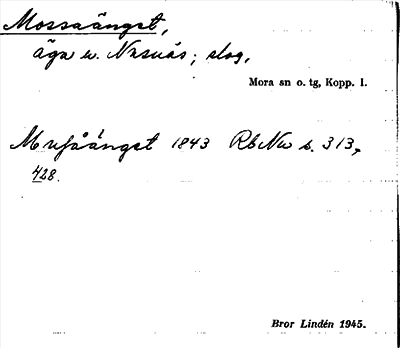 Mossaängst,
äga w. Nusnäs; slog.
Mora sn o. tg, Kopp. l.
Musåängst 1843 RbNu s. 313,
428.
Bror Lindén 1945.